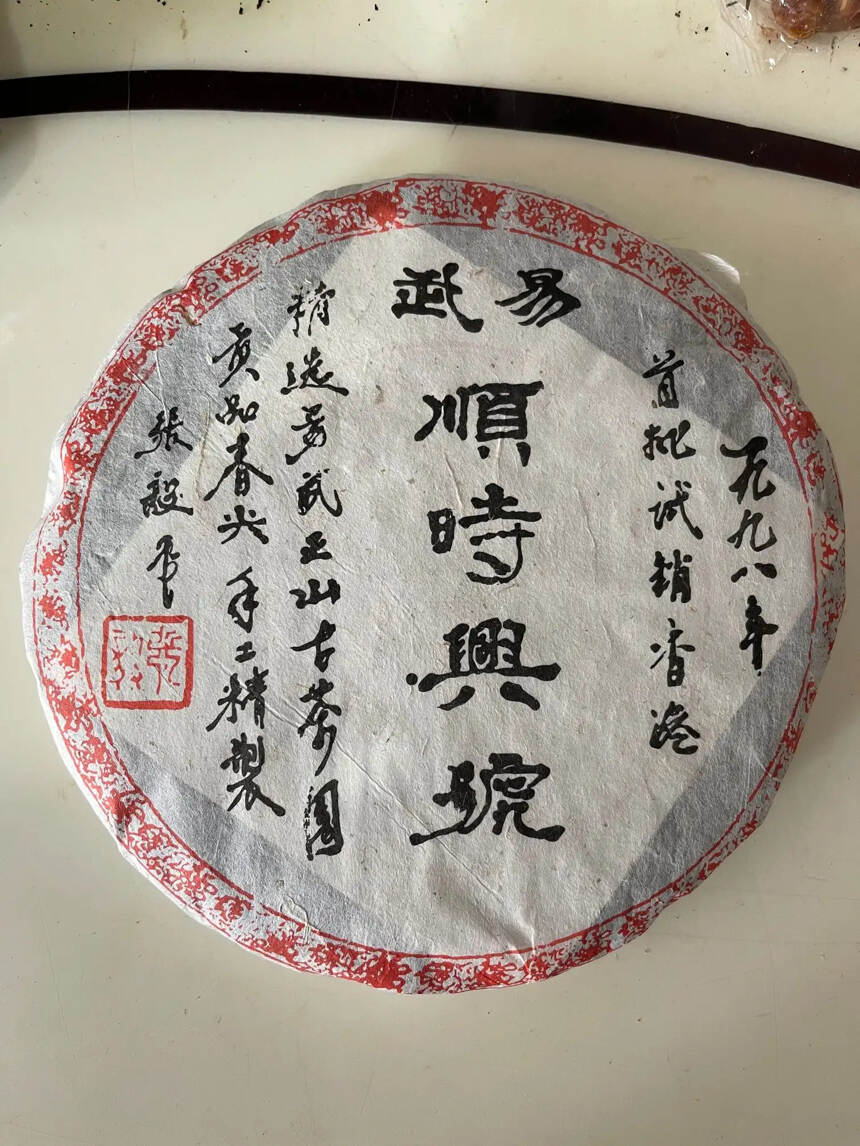 一九九八年
首批试销香港
易武
順時興號
精选易武正山古茶園
贡品春尖手工精製
張毅